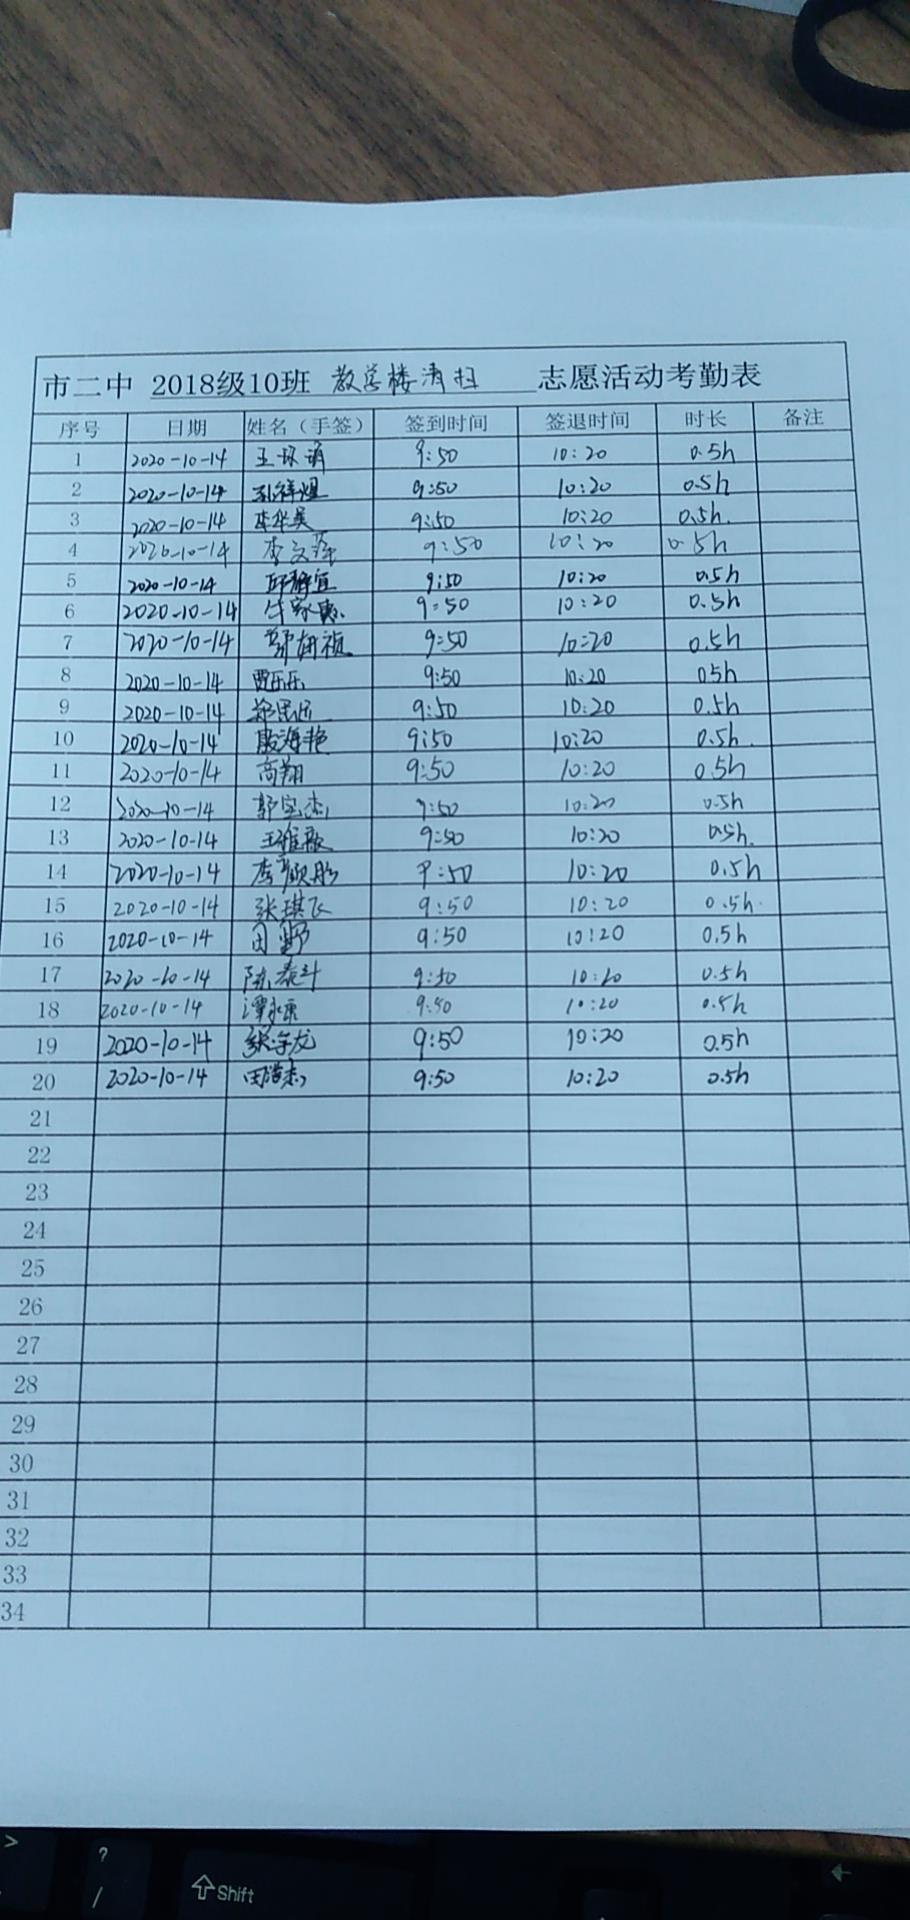 市二中 2018级10班 教学楼清扫 志愿活动考勤表
序号 日期 姓名（手签） 签到时间 签退时间 时长 备注
1 2020-10-14 9:50 10:20 0.5h
2 2020-10-14 孔祥煜 9:50 10:20 0.5h
3 2020-10-14 李华昊 9:50 10:20 0.5h.
4 2020-10-14 9:50 10:20 0.5h
5 2020-10-14 邱静宜 9:50 10:20 0.5h
6 2020-10-14 9:50 10:20 0.5h
7 2020-10-14 9:50 10:20 0.5h
8 2020-10-14 贾乐乐 9:50 10:20 0.5h
9 2020-10-14 郑思远 9:50 10:20 0.5h
10 2020-10-14 殷海艳 9:50 10:20 0.5h.
11 2020-10-14 高翔 9:50 10:20 0.5h
12 2020-10-14 郭宝杰 9:50 10:20 0.5h
13 2020-10-14 9:50 10:20 0.5h.
14 2020-10-14 9:50 10:20 0.5h
15 2020-10-14 张琪飞 9:50 10:20 0.5h.
16 2020-10-14 周野 9:50 10:20 0.5h
17 2020-10-14 陈泰斗 9:50 10:20 0.5h
18 2020-10-14 9:50 10:20 0.5h
19 2020-10-14 张宇龙 9:50 10:20 0.5h
20 2020-10-14 田浩杰 9:50 10:20 0.5h
21
22
23
24
25
26
27
28
29
30
31
32
33
34
>
?
/
Shift